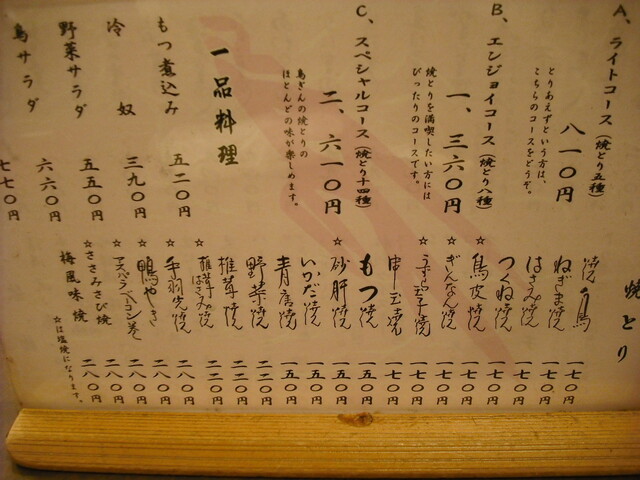 A、ライトコース（焼とり五種）
八一〇円
とりあえずという方は、
こちらのコースをどうぞ。
B、エンジョイコース（焼とり八種）
一、三六〇円
焼とりを満喫したい方には
ぴったりのコースです。
C、スペシャルコース（焼とり十四種）
二、六一〇円
鳥ぎんの焼とりの
ほとんどの味が楽しめます。
一品料理
もつ煮込み 五二〇円
冷奴 三九〇円
野菜サラダ 五五〇円
鳥サラダ 六六〇円
七七〇円
焼とり
焼鳥 一七〇円
ねぎま焼 一七〇円
はさみ焼 一七〇円
つくね焼 一七〇円
☆鳥皮焼 一七〇円
☆ぎんなん焼 一七〇円
☆うずら玉子焼 一七〇円
串玉焼 一七〇円
もつ焼 一五〇円
☆砂肝焼 一五〇円
いかだ焼 一五〇円
青唐焼 一五〇円
野菜焼 二二〇円
椎茸焼 二二〇円
☆椎茸はさみ焼 二二〇円
☆手羽先焼 二八〇円
☆鴨やき 二八〇円
☆アスパラベーコン巻 二八〇円
☆ささみさび焼 二八〇円
梅風味焼 二八〇円
☆は塩焼になります。